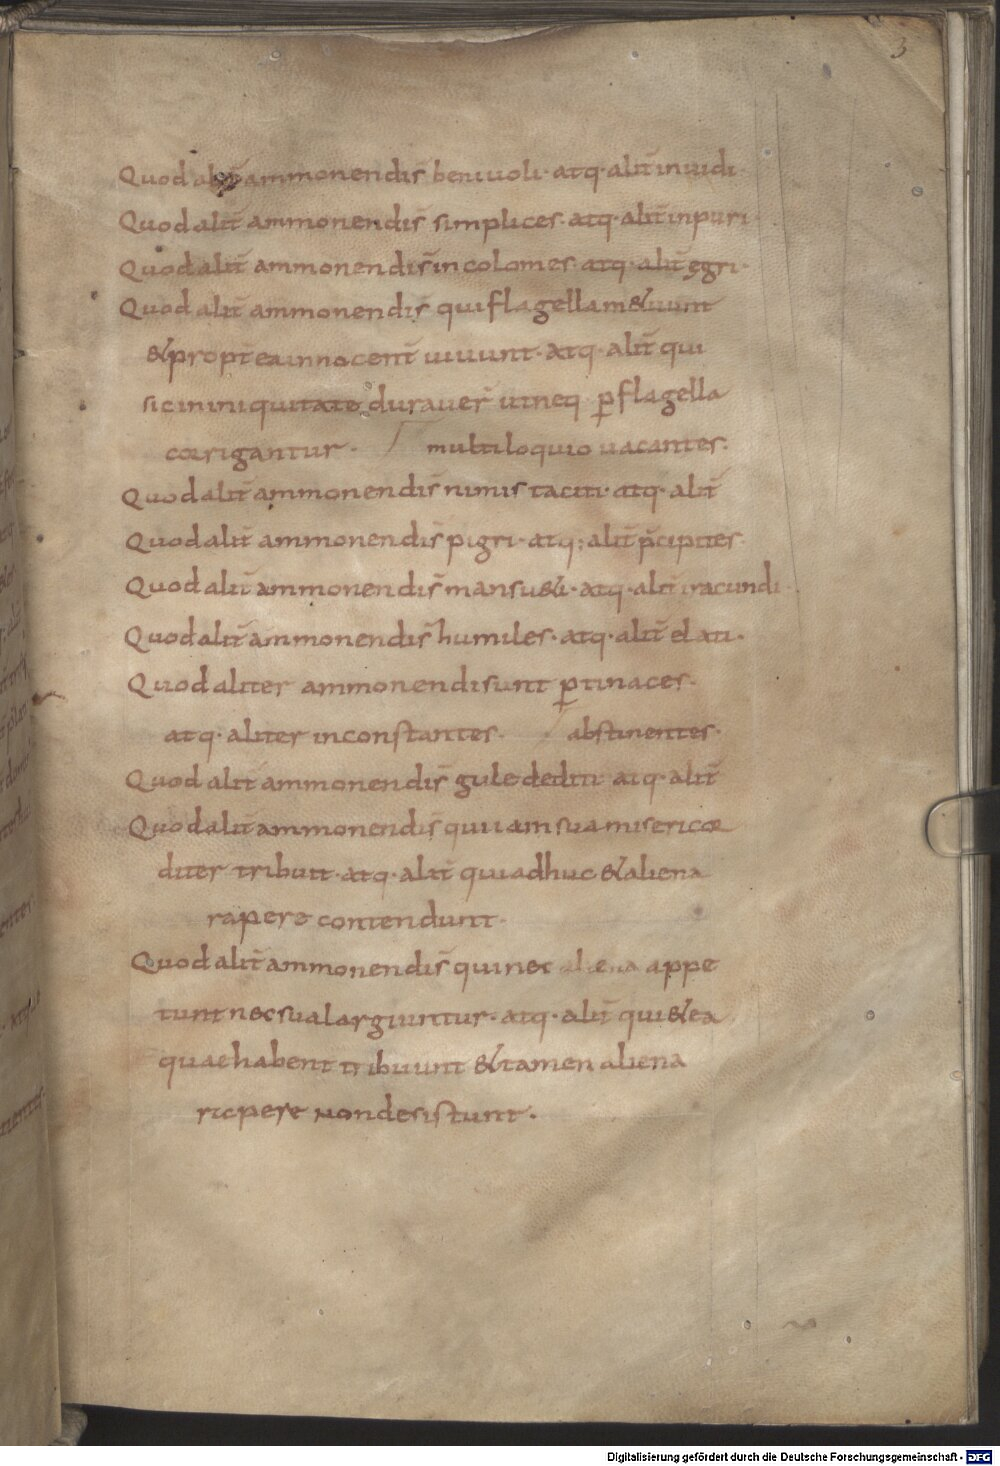 3
Quod alit̄ ammonendis̄ beniuoli· atq· alit̄ inuidi·
Quod alit̄ ammonendis̄ simplices· atq· alit̄ inpuri·
Quod alit̄ ammonendis̄ incolomes· atq· alit̄ egri·
Quod alit̄ ammonendis̄ qui flagella m&uunt
& propterea innocent̄ uiuunt· atq· alit̄ qui
sic in iniquitate durauer̄ ut neq ꝑ flagella
corrigantur· multiloquio uacantes·
Quod alit̄ ammonendis̄ nimis taciti· atq· alit̄
Quod alit̄ ammonendis̄ pigri· atq; alit̄ p̄cipites·
Quod alit̄ ammonendis̄ mansu&i· atq· alit̄ iracundi·
Quod alit̄ ammonendis̄ humiles· atq· alit̄ elati·
Quod aliter ammonendi sunt ꝑtinaces·
atq· aliter inconstantes· abstinentes·
Quod alit̄ ammonendis̄ gule dediti· atq· alit̄
Quod alit̄ ammonendis̄ qui iam sua misericor
diter tribuit· atq· alit̄ qui adhuc & aliena
rapere contendunt·
Quod alit̄ ammonendis̄ qui nec aliena appe
tunt nec sua largiuntur· atq· alit̄ qui & ea
quae habent tribuunt & tamen aliena
rapere non desistunt·
Digitalisierung gefördert durch die Deutsche Forschungsgemeinschaft - DFG